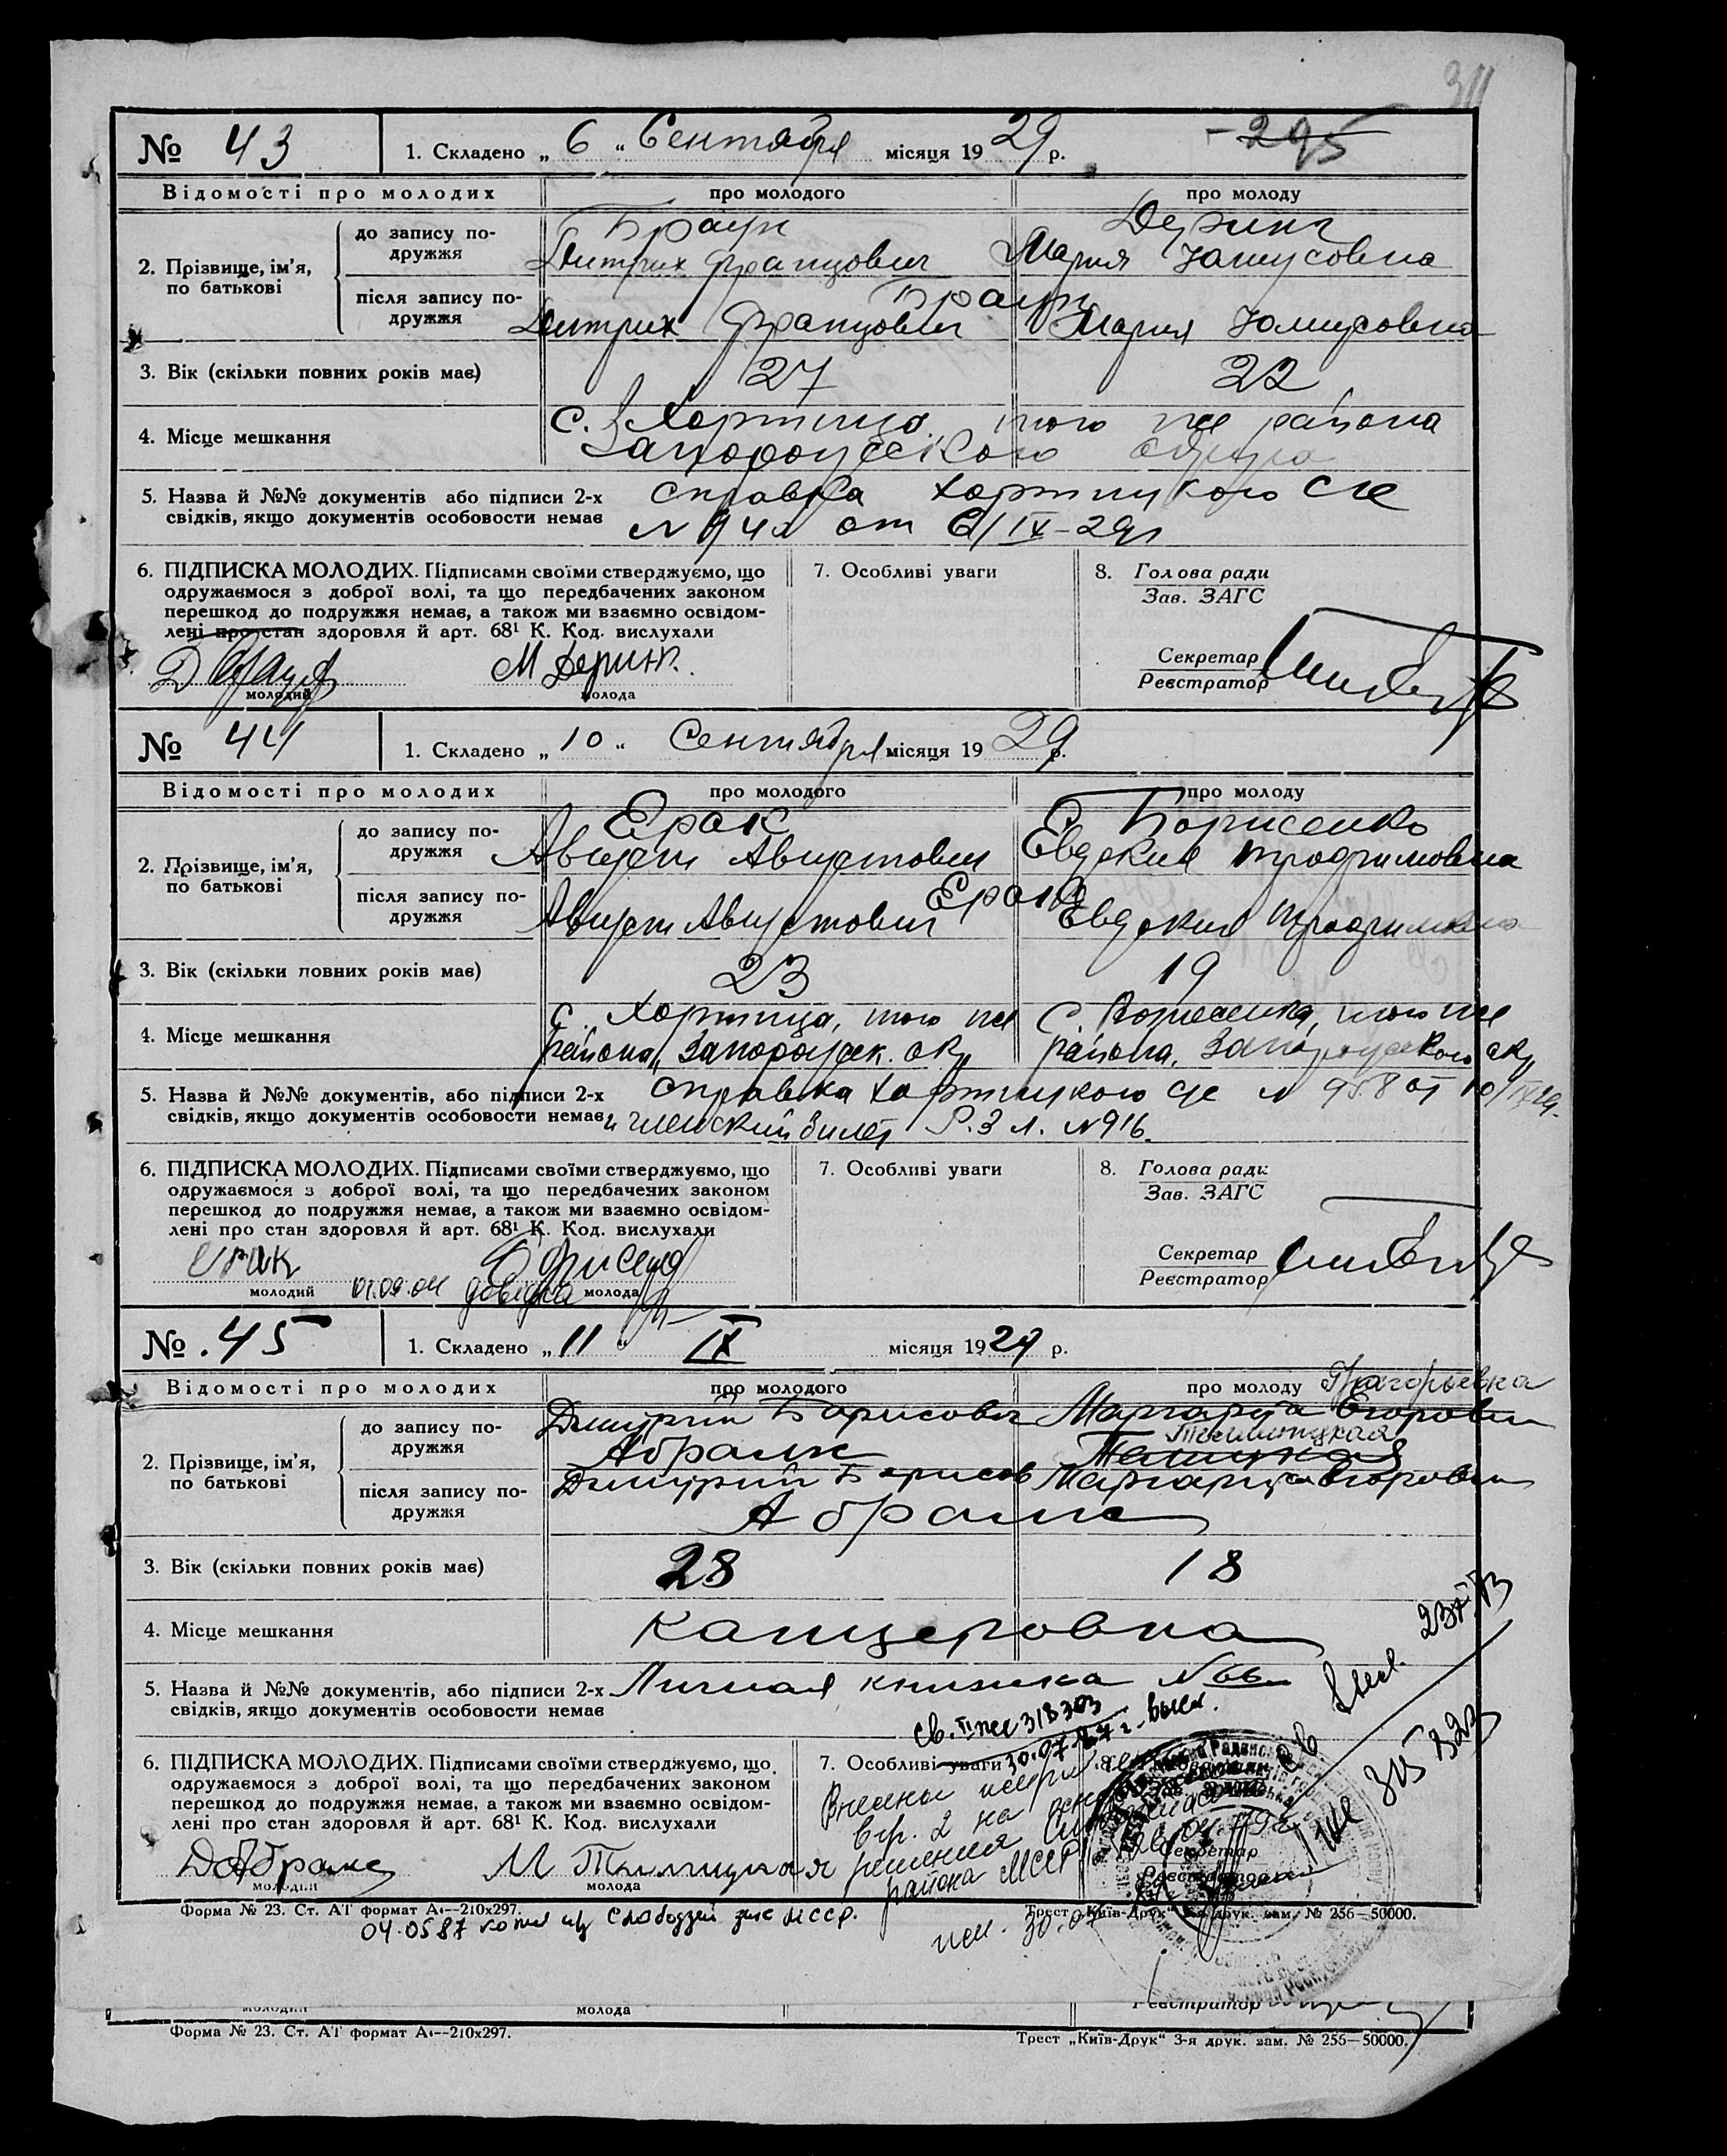 311
№ 43 1. Складено „ 6 “ Сентября місяця 1929 р. - 295
Відомості про молодих про молодого про молоду
2. Прізвище, ім’я, по батькові
до запису подружжя Браун Деринг
Дитрих Францович Мария
після запису подружжя Браун
Дитрих Францович Мария
3. Вік (скільки повних років має) 27 22
4. Місце мешкання с. Хортица, того же района
Запорожского округа
5. Назва й №№ документів або підписи 2-х справка Хортицкого
свідків, якщо документів особовости немає от 6/IX-29
6. ПІДПИСКА МОЛОДИХ. Підписами своїми стверджуємо, що
одружаємося з доброї волі, та що передбачених законом
перешкод до подружжя немає, а також ми взаємно освідом-
лені про стан здоровля й арт. 68¹ К. Код. вислухали
7. Особливі уваги
8. Голова ради
Зав. ЗАГС
Секретар
Реєстратор
М Деринг.
молодий молода
№ 44 1. Складено „ 10 “ Сентября місяця 1929 р.
Відомості про молодих про молодого про молоду
2. Прізвище, ім’я, по батькові
до запису подружжя Ерак Борисенко
Август Августович Евдокия Трофимовна
після запису подружжя Ерак
Август Августович Евдокия Трофимовна
3. Вік (скільки повних років має) 23 19
4. Місце мешкання с. Хортица, того же с. Вознесенка, того же
района, Запорожск. окр района, Запорожского окр
5. Назва й №№ документів, або підписи 2-х справка Хортицкого № 958 от 10/IX
свідків, якщо документів особовости немає и членский билет Р.З.Л. №916.
6. ПІДПИСКА МОЛОДИХ. Підписами своїми стверджуємо, що
одружаємося з доброї волі, та що передбачених законом
перешкод до подружжя немає, а також ми взаємно освідом-
лені про стан здоровля й арт. 68¹ К. Код. вислухали
7. Особливі уваги
8. Голова ради
Зав. ЗАГС
Секретар
Реєстратор
Ерак Борисенко
молодий 01.09.04 довідка молода
№ 45 1. Складено „ 11 “ IX місяця 1929 р.
Григорьевна
Відомості про молодих про молодого про молоду
2. Прізвище, ім’я, по батькові
до запису подружжя Дмитрий Борисович Маргарита Егоровна
Абрамс
після запису подружжя Дмитрий Борисов Маргарита Егоровна
Абрамс
3. Вік (скільки повних років має) 28 18
4. Місце мешкання Канцеровка
5. Назва й №№ документів, або підписи 2-х Личная книжка №66
свідків, якщо документів особовости немає
св. II 318303
30.07.87 г. высл.
6. ПІДПИСКА МОЛОДИХ. Підписами своїми стверджуємо, що
одружаємося з доброї волі, та що передбачених законом
перешкод до подружжя немає, а також ми взаємно освідом-
лені про стан здоровля й арт. 68¹ К. Код. вислухали
7. Особливі уваги
8.
Внесены
гр. 2 на
решения
района МССР
315323
Секретар
Реєстратор
Д Абрамс
молодий молода
Форма № 23. Ст. АТ формат А₄—210х297. Трест „Київ-Друк“ 3-я друк. зам. № 256—50000.
04.05.87 копия из Слободзеи загс МССР.
молодий молода Реєстратор
Форма № 23. Ст. АТ формат А₄—210х297. Трест „Київ-Друк“ 3-я друк. зам. № 256—50000.